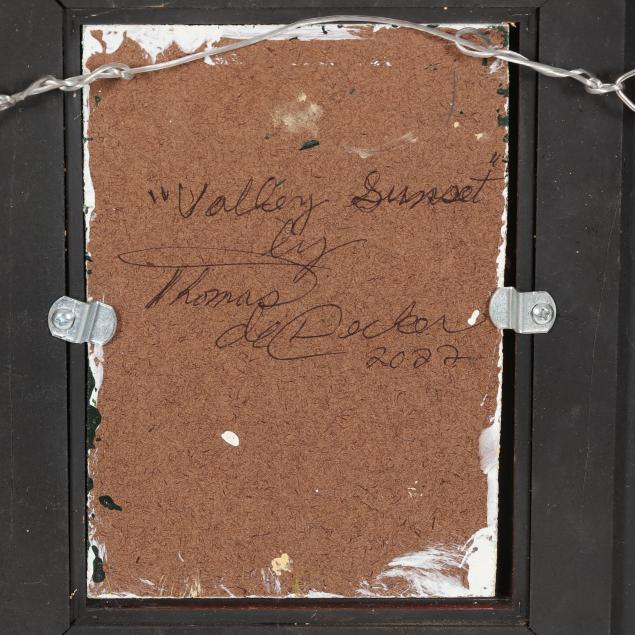 "Valley Sunset"
by
Thomas
deDecker
2022